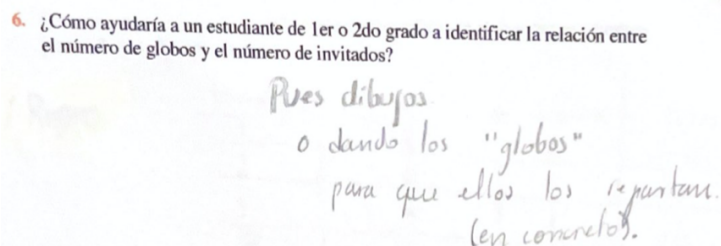 6. ¿Cómo ayudaría a un estudiante de 1er o 2do grado a identificar la relación entre
el número de globos y el número de invitados?
Pues dibujos
o dando los "globos"
para que ellos los repartan.
(en concreto).